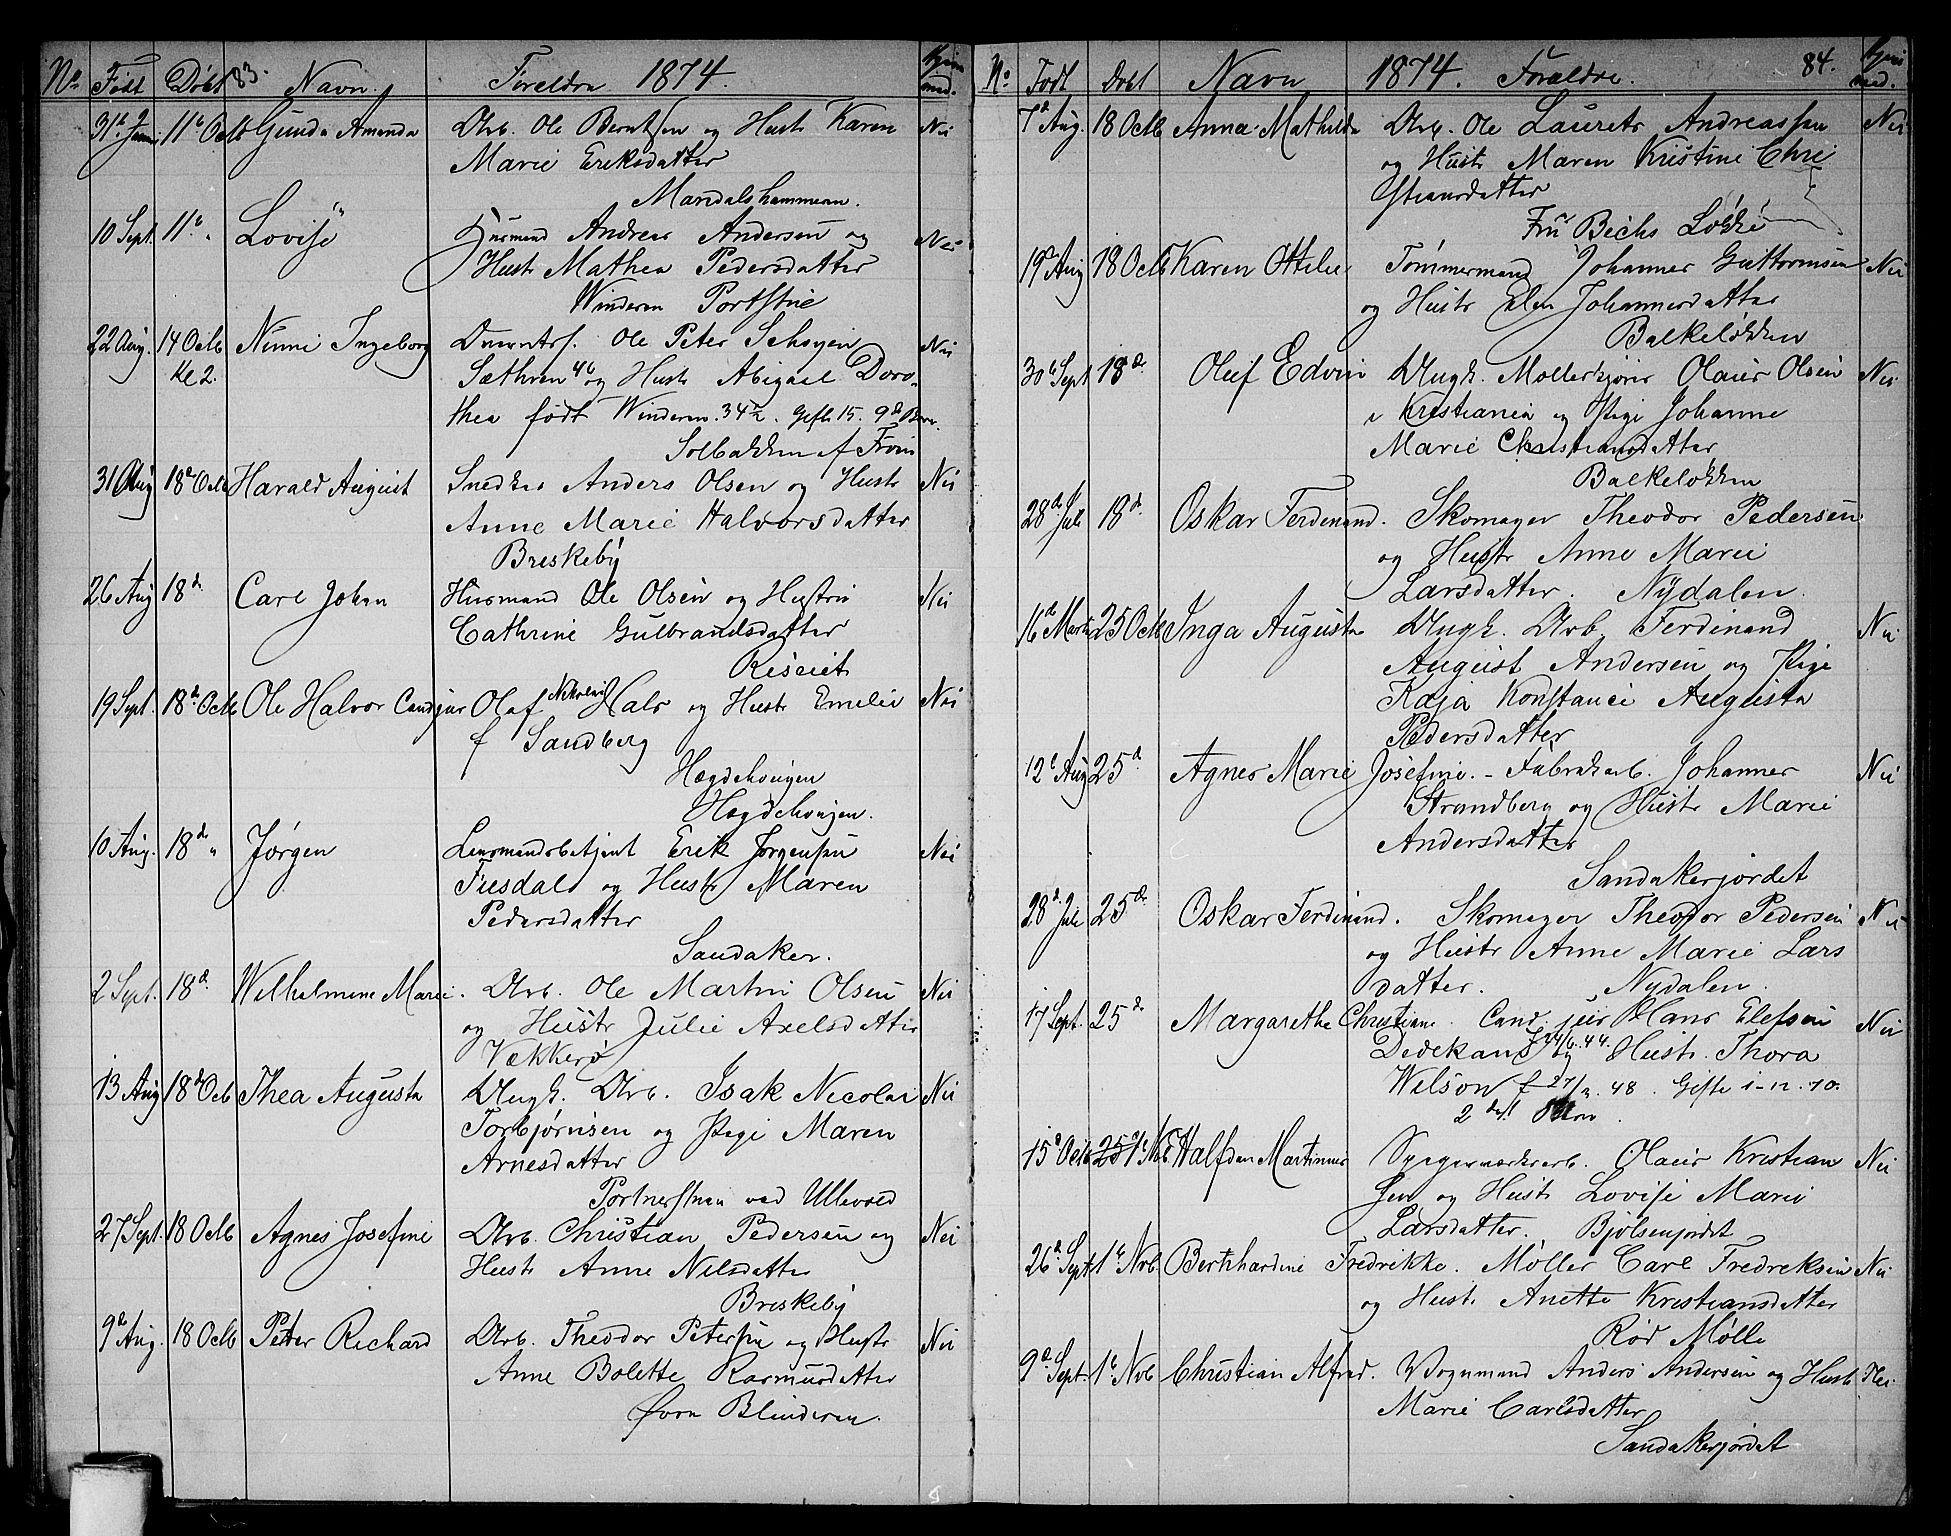 No Født Døbt 83. Navn. Foreldre 1874. Hjem med.
31te Juni 11te Octb Gunda Amanda Arb. Ole Berntsen og Hustr Karen Nei
Marie Eriksdatter
Maridalshammeren.
10 Sept. 11te " Lovise Husmand Andreas Andersen og Nei
Hustr Mathea Pedersdatter
Winderen Portstue
22 Aug. 14 Octb Ninni Ingeborg Ole Peter Schøyen Nei
Kl 2. Sæthren 46 og Hustr Abigael Doro-
thea født Winderen. 34½. Gift 15. 9de Barn.
Solbakken af Froen
31 Aug 18de Octb Harald August Snedker Anders Olsen og Hustr Nei
Anne Marie Halvorsdatter
Breskeby
26 Aug 18de Carl Johan Husmand Ole Olsen og Hustru Nei
Cathrine Gulbrandsdatter
Riseiet
19 Sept. 18de Octb Ole Halvor Cand jur Olaf Nikolai Hals og Hustr Emelie Nei
f Sandberg
Hægdehougen
Hægdehougen.
10 Aug. 18de " Jørgen Lensmandsbetjent Erik Jørgensen Nei
Fusdal og Hustr Maren
Pedersdatter
Sandaker.
2 Sept. 18de Wilhelmine Marie. Arb. Ole Martin Olsen Nei
og Hustr Julie Axelsdatter
Vækkerø
13 Aug 18de Octb Thea Augusta Ungk. Arb. Isak Nicolai Nei
Torbjørnsen og Pige Maren
Arnesdatter
Portnerstuen ved Ullevold
27 Sept. 18 Octb Agnes Josefine Arb. Christian Pedersen og Nei
Hustr Anne Nilsdatter
Breskeby
9de Aug. 18 Octb Peter Richard Arb. Theodor Petersen og Hustr Nei
Anne Bolette Rasmusdatter
Øvre Blinderen.
No Født Døbt Navn 1874. Forældre. 84. Hjem med.
7de Aug. 18 Octb Anna Mathilde Arb. Ole Laurets Andreassen Nei
og Hustr Maren Kristine Chri
stiansdatter
Fru Bechs Løkke
19de Aug 18 Octb Karen Ottilie Tømmermand Johannes Guttormsen Nei
og Hustr Elen Johannesdatter
Balkeløkken
30te Sept 18de Oluf Edvin Ungk. Møllerkjører Olaus Olsen Nei
i Kristiania og Pige Johanne
Marie Christiansdatter
Balkeløkken
28de Juli 18de Oskar Ferdinand. Skomager Theodor Pedersen
og Hustr Anne Marie
Larsdatter. Nydalen.
16de Marts 25 Octb Inga Augusta Ungk. Arb. Ferdinand Nei
August Andersen og Pige
Kaja Konstance Augusta
Pedersdatter
12te Aug 25de Agnes Marie Josefine. - Fabrikarb. Johannes Nei
Strandberg og Hustr Marie
Andersdatter
Sandakerjordet
28de Juli 25de Oskar Ferdinand. Skomager Theodor Pedersen Nei
og Hustr Anne Marie Lars
datter. Nydalen.
17 Sept. 25de Margarethe Christiane. Cand. jur Hans Elefsen Nei
Dedekam og Hustr. Thora
Wilson f 27/2. 48. Gifte 1-12.70.
2det Barn.
15de Octb 25 1te Nvb Halfdan Martinius Spigerværksarb. Olaus Kristian Nei
sen og Hustr Lovise Marie
Larsdatter. Bjølsenjordet
26de Sept. 1te Nvb. Bernhardine Fredrikke. Møller Carl Fredreksen Nei
og Hustr Anette Kristiansdatter
Rød Mølle
9de Sept. 1te Nvb Christian Alfred. Vognmand Anders Andersen og Hustr Nei
Marie Carlsdatter
Sandakerjordet